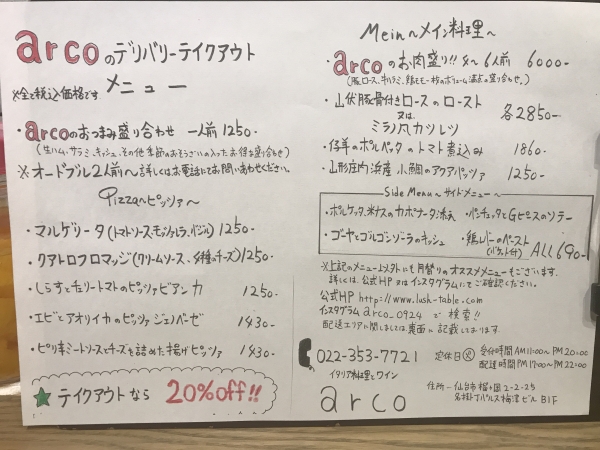 arcoのデリバリーテイクアウト
メニュー
※全て税込価格です
・arcoのおつまみ盛り合わせ 一人前 1250-
(生ハム、サラミ、キッシュ、その他季節のおそうざいの入ったお得な盛り合わせ)
※オードブル2人前〜詳しくはお電話にてお問いあわせください。
Pizza〜ピッツァ〜
・マルゲリータ(トマトソース、モッツァレラ、バジル) 1250-
・クアトロフロマッジ(クリームソース、4種のチーズ) 1250-
・しらすと千切りトマトのピッツァビアンカ 1250-
・エビとアオリイカのピッツァ ジェノベーゼ 1430-
・ピリ辛ミートソースとチーズを詰めた揚げピッツァ 1430-
★テイクアウトなら 20%off!!
Mein〜メイン料理〜
・arcoのお肉盛り!! 4〜6人前 6000-
・山伏豚骨付きロースのロースト
又は
ミラノ風カツレツ
各2850-
・仔羊のポルペッタのトマト煮込み 1860-
・山形庄内浜産 小鯛のアクアパッツァ 1250-
Side Menu〜サイドメニュー〜
・ポルケッタ、米ナスのカポナータ添え ・パンチェッタとGピースのソテー
・ゴーヤとゴルゴンゾーラのキッシュ ・鶏レバーのペースト
(バケット付) ALL690-
※上記のメニュー以外にも月替りのオススメメニューもございます。
詳しくは、公式HP又はインスタグラムにてご確認ください。
公式HP http://www.lush-table.com
インスタグラム arco_0924 で検索!!
配送エリアに関しましては裏面に記載しております。
022-353-7721 定休日㊋ 受付時間 AM11:00〜PM20:00
配達時間 PM17:00〜PM22:00
イタリア料理とワイン
arco
住所-仙台市榴ヶ岡2-2-25
B1F